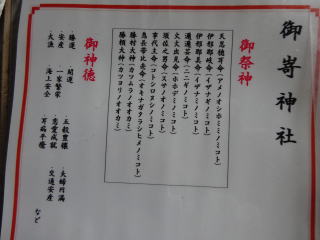 御寄神社
御祭神
天忍穂耳命(アメノオシホミミノミコト)
伊邪那岐命(イザナギノミコト)
伊邪那美命(イザナミノミコト)
邇邇芸命(ニニギノミコト)
火火出見命(ホホデミノミコト)
須佐之男命(スサノオノミコト)
事代主命(コトシロヌシノミコト)
息長帯比売命(オキナガタラシヒメノミコト)
勝村大神(カツムラノオオカミ)
勝頼大神(カツヨリノオオカミ)
御神徳
勝運 ・開運 ・五穀豊穣 ・夫婦円満
・安産 ・一家繁栄 ・恋愛成就 ・交通安全
・大漁 ・海上安全 ・耳病平癒 など